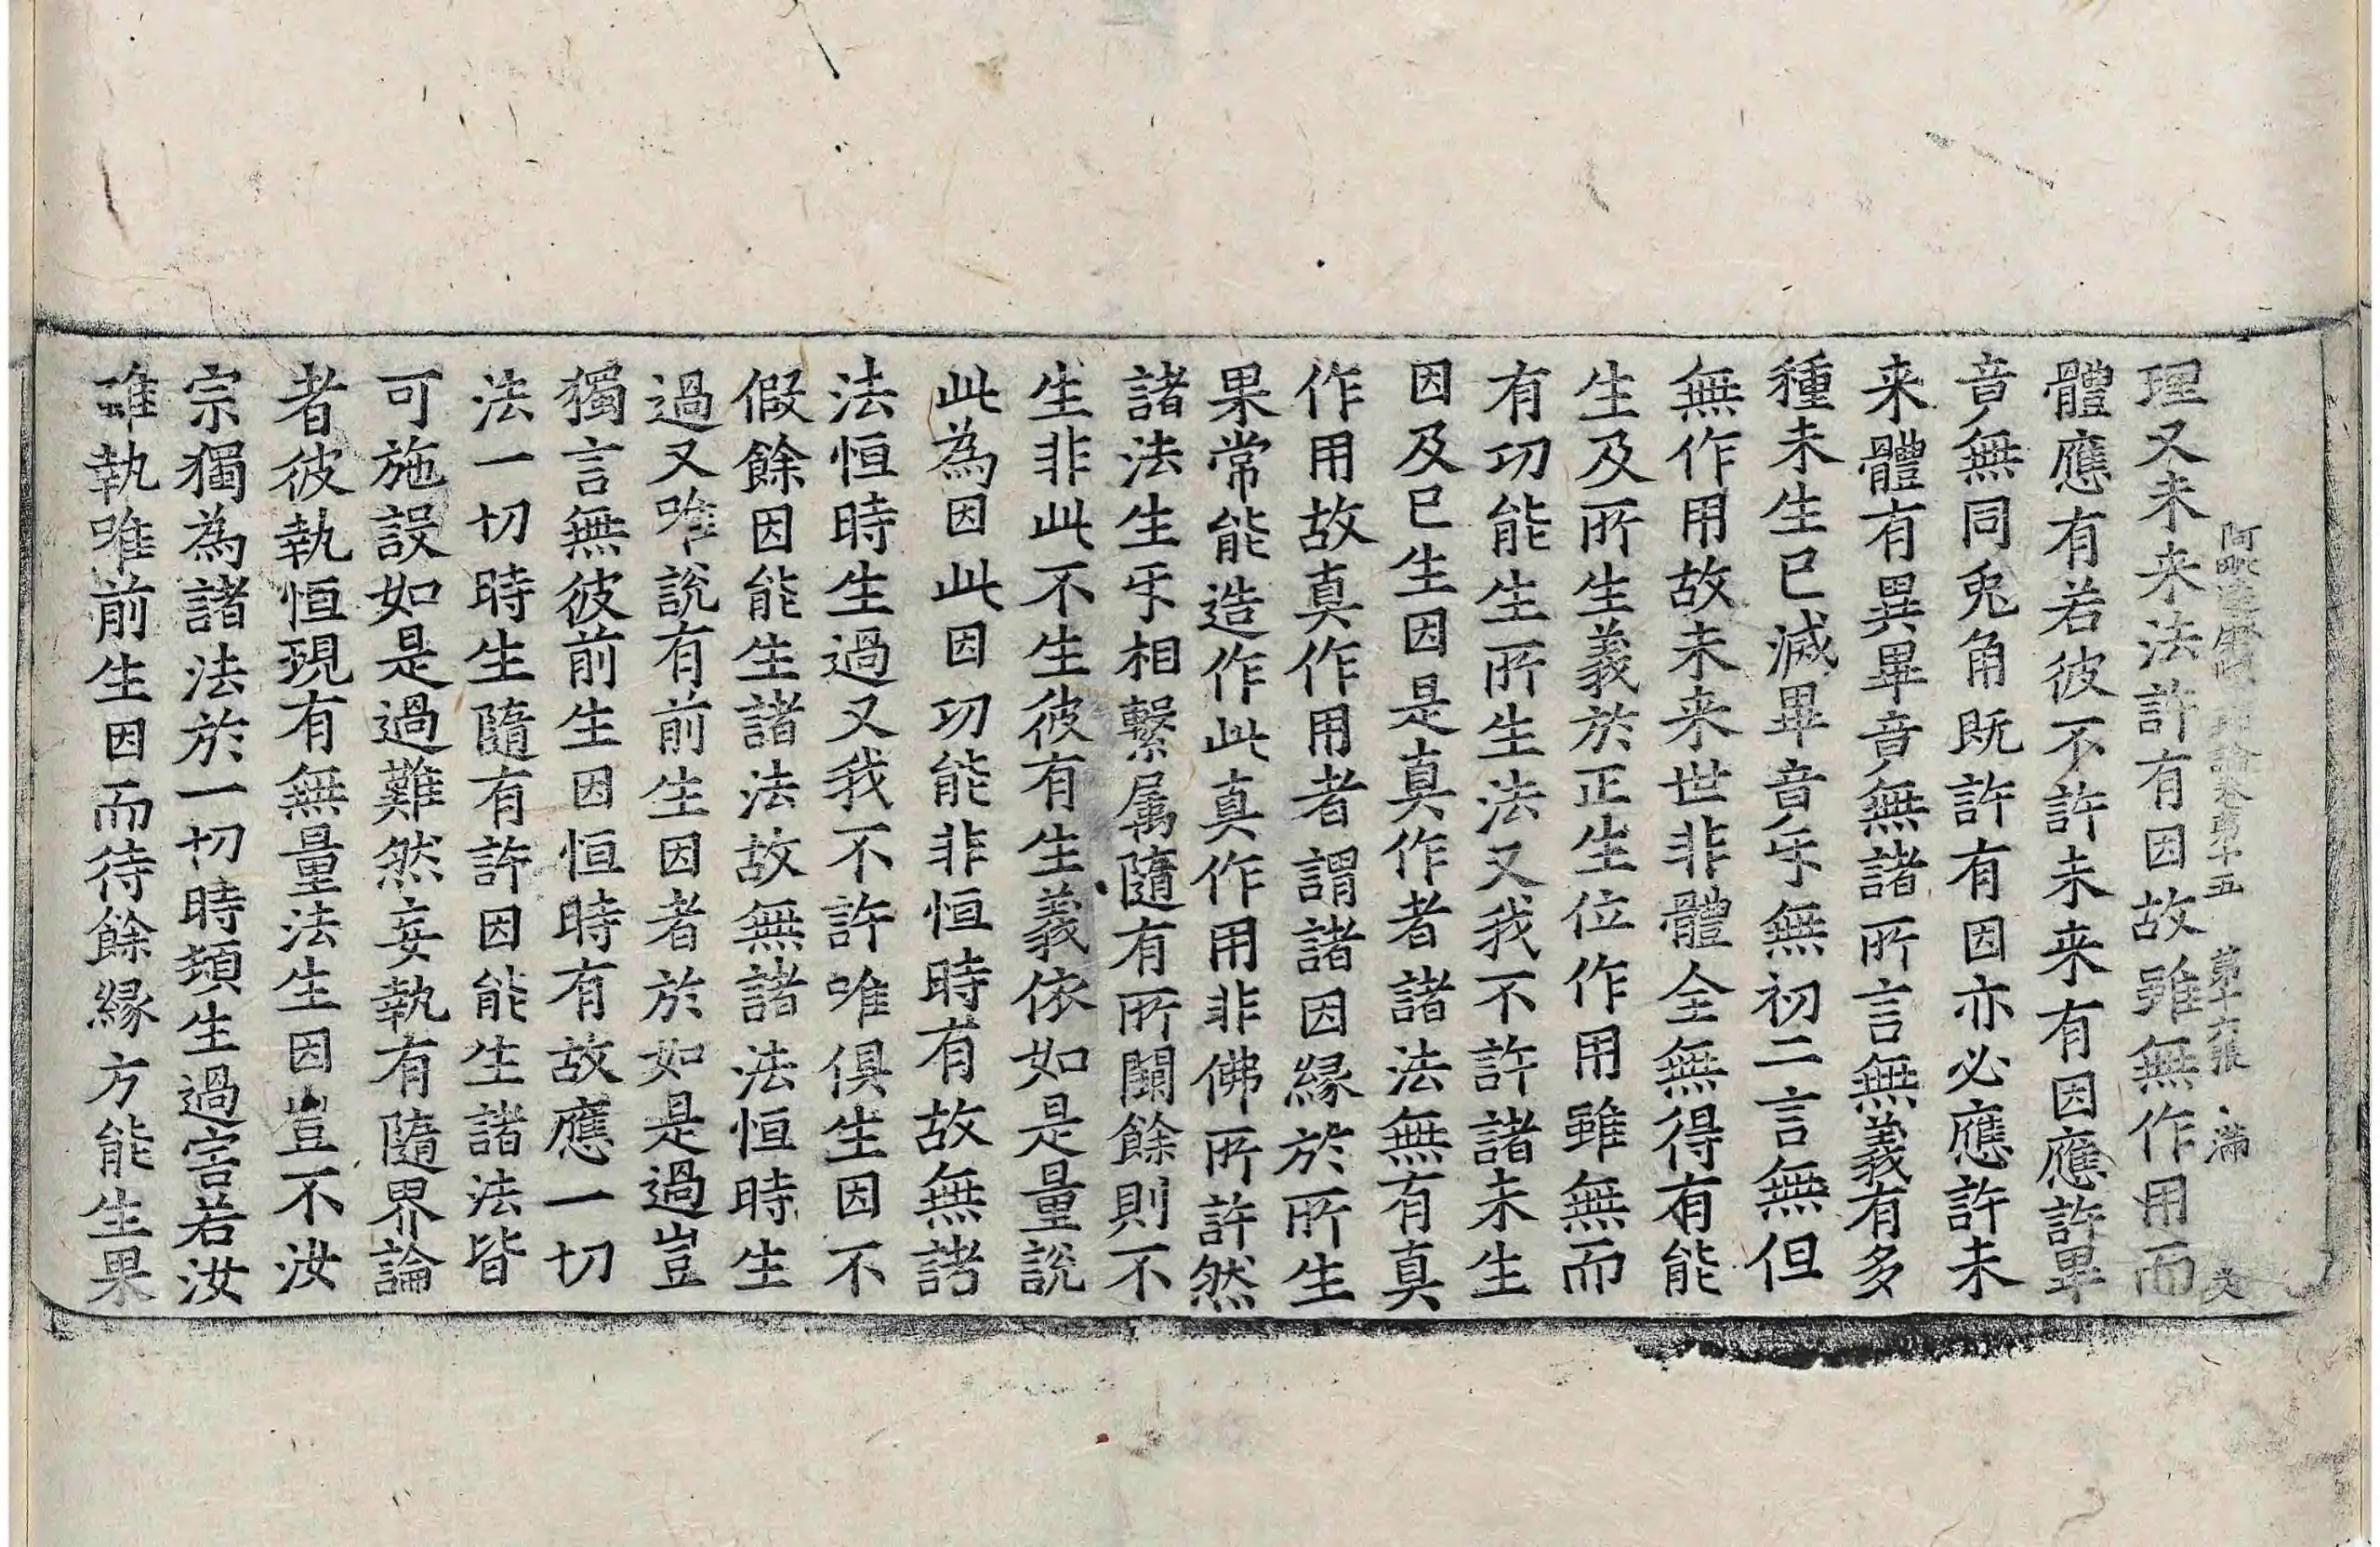 阿毗達磨順正理論卷第十五 第十六張 滿
理又未来法許有因故雖無作用而
體應有若彼不許未来有因應許畢
竟無同兎角既許有因亦必應許未
来體有異畢竟無諸所言無義有多
種未生已滅畢竟互無初二言無但
無作用故未来世非體全無得有能
生及所生義於正生位作用雖無而
有功能生所生法又我不許諸未生
因及已生因是真作者諸法無有真
作用故真作用者謂諸因縁於所生
果常能造作此真作用非佛所許然
諸法生互相繫属隨有所闕餘則不
生非此不生彼有生義依如是量說
此為因此因功能非恒時有故無諸
法恒時生過又我不許唯俱生因不
假餘因能生諸法故無諸法恒時生
過又唯說有前生因者於如是過豈
獨言無彼前生因恒時有故應一切
法一切時生隨有許因能生諸法皆
可施設如是過難然妄執有隨界論
者彼執恒現有無量法生因豈不汝
宗獨為諸法於一切時頓生過害若汝
雖執唯前生因而待餘縁方能生果